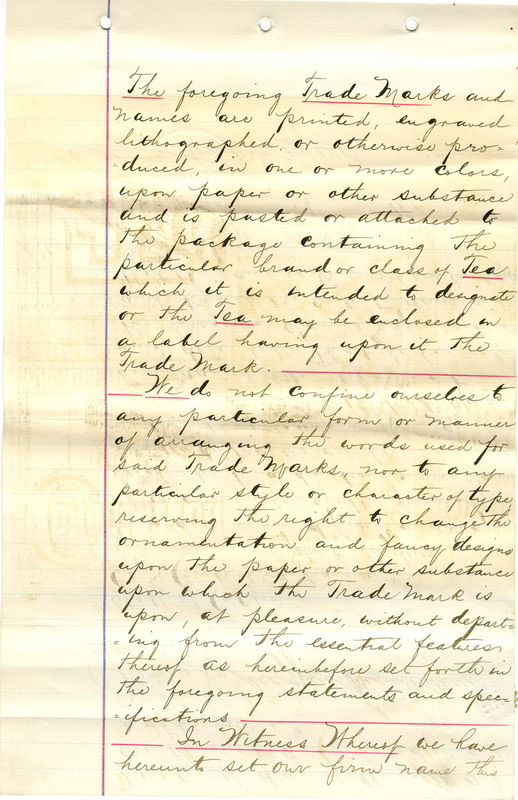 The foregoing Trade Marks and
names are printed, engraved
lithographed, or otherwise pro-
-duced, in one or more colors,
upon paper or other substance
and is pasted or attached to
the package containing the
particular brand or class of Tea
which it is intended to designate
or the Tea may be enclosed in
a label having upon it the
Trade Mark.
We do not confine ourselves to
any particular form or manner
of arranging the words used for
said Trade Marks, nor to any
particular style or character of type,
reserving the right to change the
ornamentation and fancy designs
upon the paper or other substance
upon which the Trade Mark is
upon, at pleasure, without depart-
-ing from the essential features
thereof as hereinbefore set forth in
the foregoing statements and spec-
-ifications
In Witness Whereof we have
hereunto set our firm name this